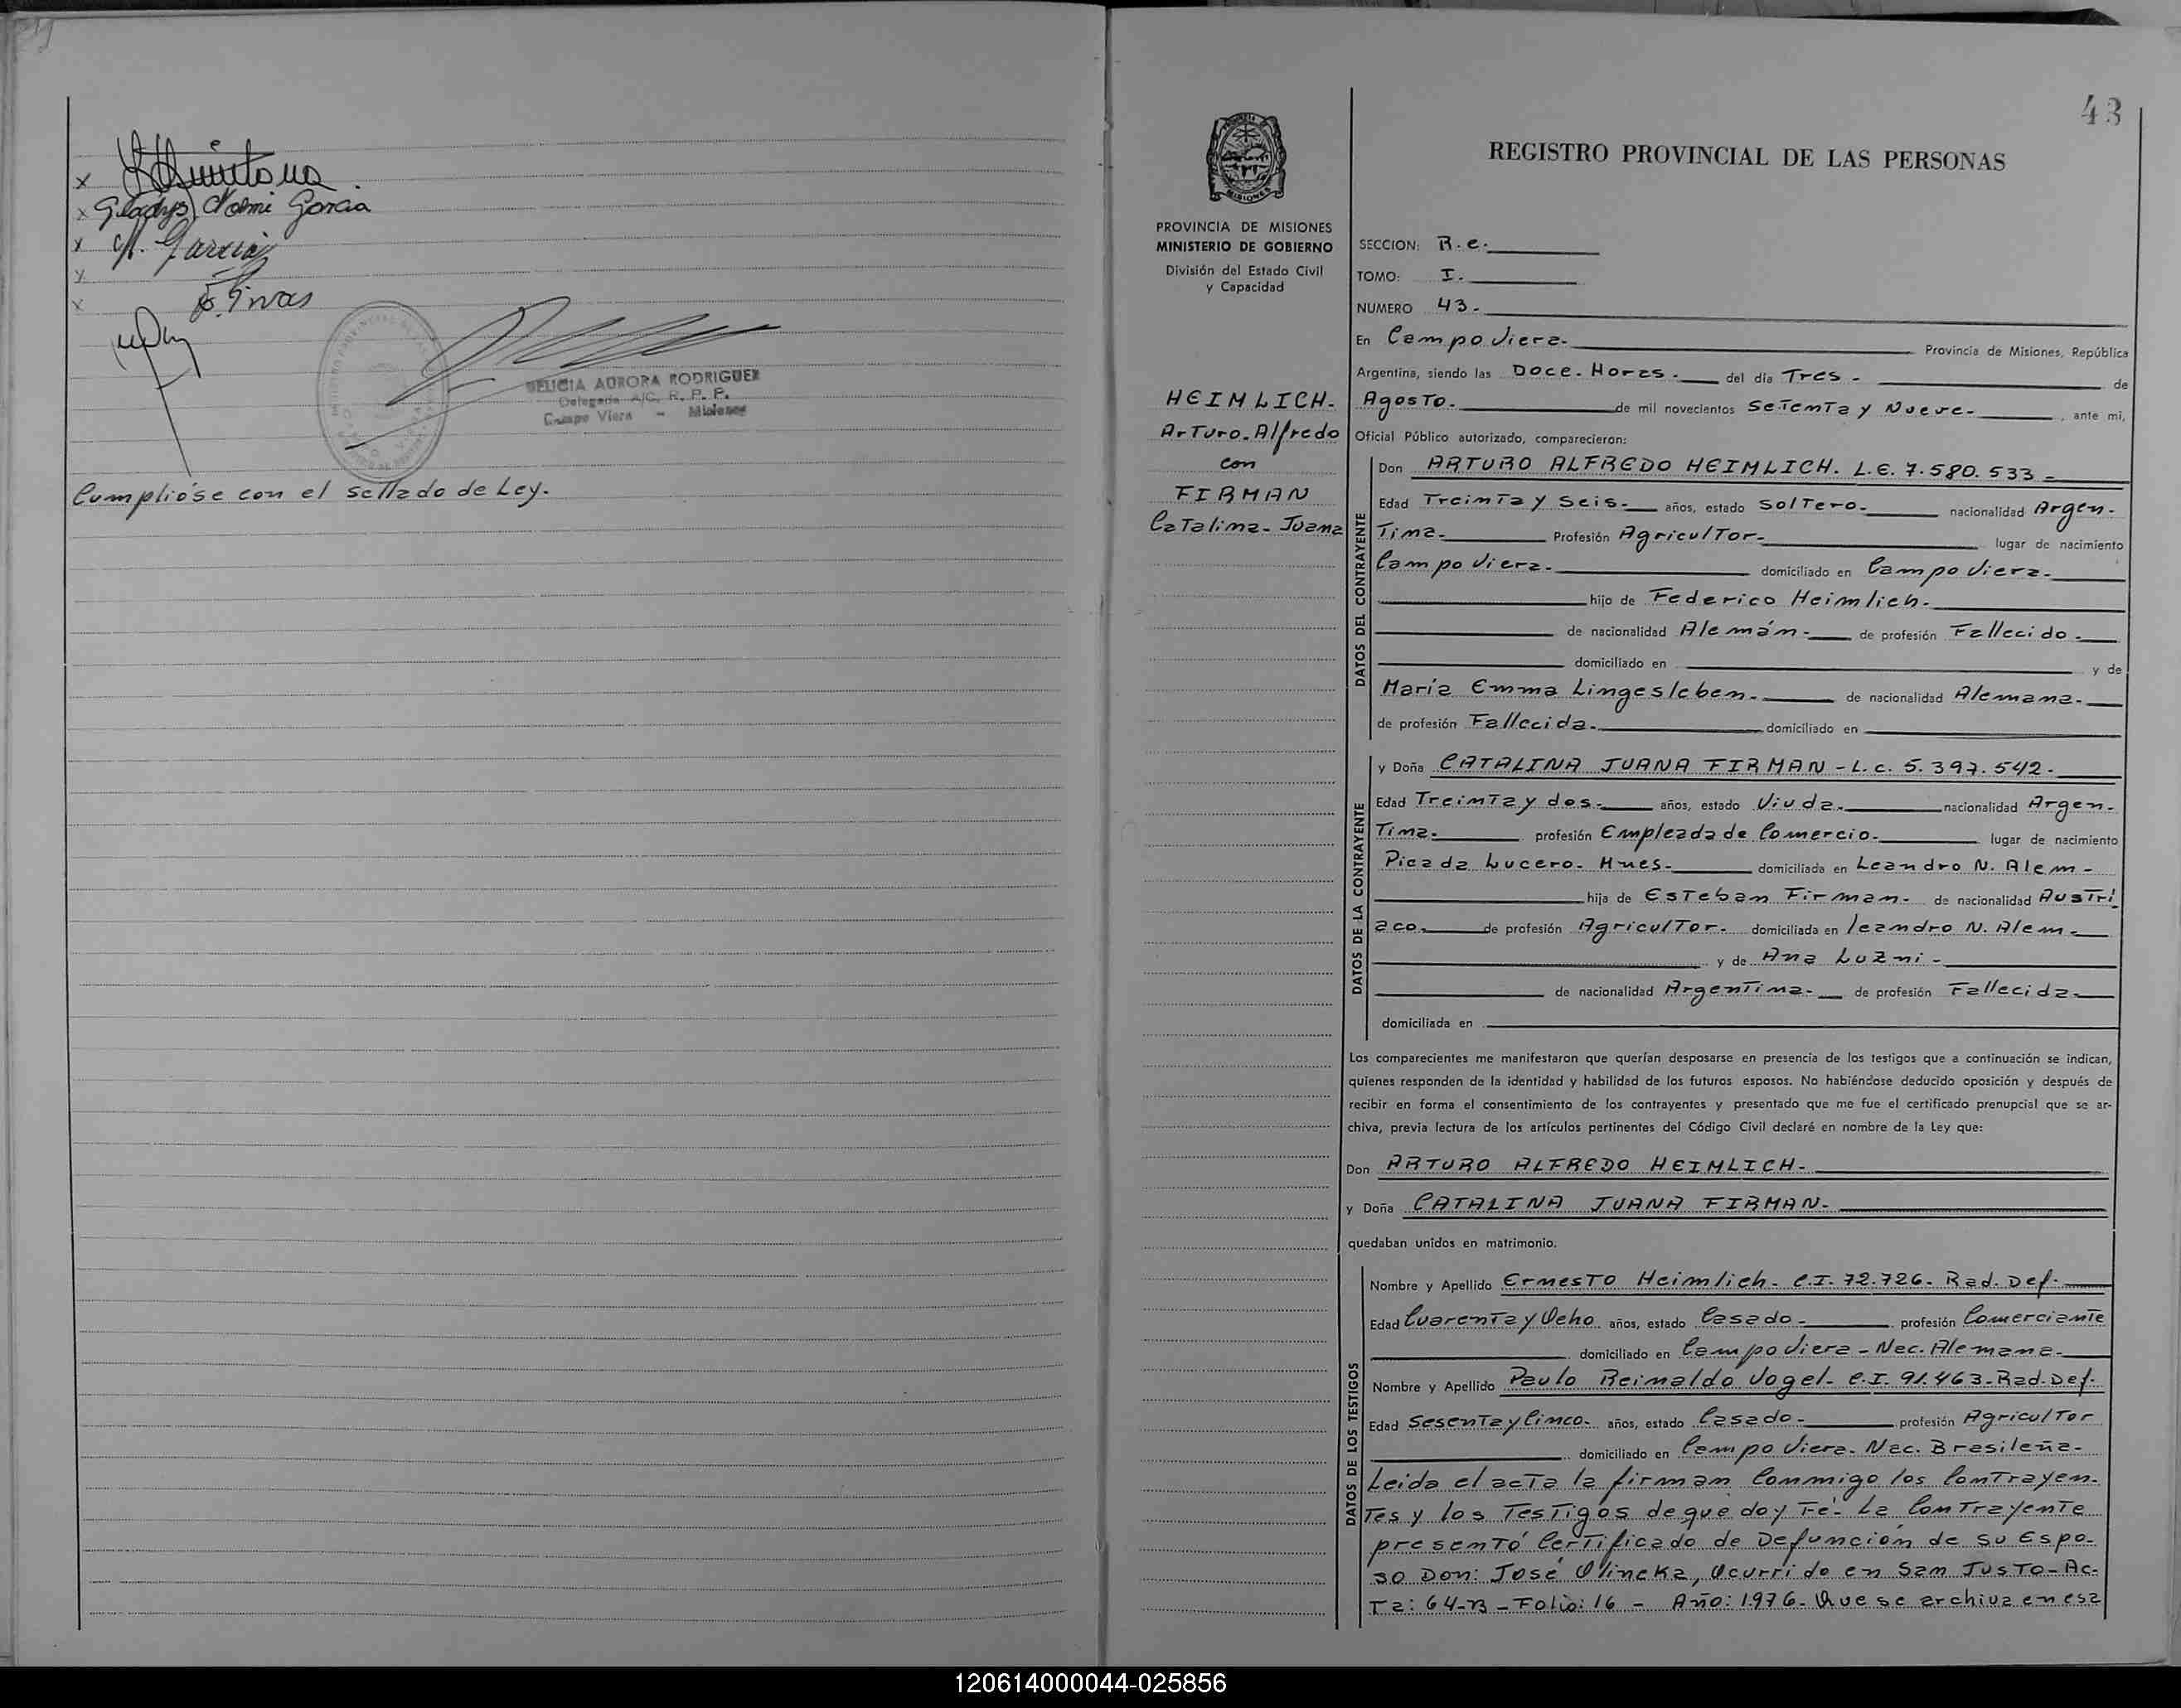 x Quintana.
x Gladys Noemi Garcia
x Garcia
x
x
DELICIA AURORA RODRIGUEZ
Delegada A/C. R. P. P.
Campo Viera - Misiones
Cumplióse con el Sellado de Ley.
43
REGISTRO PROVINCIAL DE LAS PERSONAS
PROVINCIA DE MISIONES
MINISTERIO DE GOBIERNO
División del Estado Civil
y Capacidad
HEIMLICH.
Arturo. Alfredo
con
FIRMAN
Catalina- Juana
SECCION: R.e.
TOMO: I.
NUMERO 43.
En Campo Viera. Provincia de Misiones, República
Argentina, siendo las Doce. Horas. del día Tres - de
Agosto. de mil novecientos Setenta y Nueve. , ante mi,
Oficial Público autorizado, comparecieron:
DATOS DEL CONTRAYENTE
Don ARTURO ALFREDO HEIMLICH. L.E. 7.580.533 -
Edad Treinta y Seis. años, estado Soltero. nacionalidad Argen-
tina. Profesión Agricultor. lugar de nacimiento
Campo Viera. domiciliado en Campo Viera.
hijo de Federico Heimlich.
de nacionalidad Alemán. de profesión Fallecido.
domiciliado en y de
María Emma Lingesleben. de nacionalidad Alemana.
de profesión Fallecida. domiciliado en
DATOS DE LA CONTRAYENTE
y Doña CATALINA JUANA FIRMAN - L.C. 5.397.542.
Edad Treinta y dos. años, estado Viuda. nacionalidad Argen-
tina. profesión Empleada de Comercio. lugar de nacimiento
Picada Lucero- Mnes. domiciliada en Leandro N. Alem -
hija de Esteban Firman. de nacionalidad Austrí
aco. de profesión Agricultor. domiciliada en leandro N. Alem.
y de Ana Luzni -
de nacionalidad Argentina. de profesión Fallecida.
domiciliada en
Los comparecientes me manifestaron que querían desposarse en presencia de los testigos que a continuación se indican,
quienes responden de la identidad y habilidad de los futuros esposos. No habiéndose deducido oposición y después de
recibir en forma el consentimiento de los contrayentes y presentado que me fue el certificado prenupcial que se ar-
chiva, previa lectura de los artículos pertinentes del Código Civil declaré en nombre de la Ley que:
Don ARTURO ALFREDO HEIMLICH.
y Doña CATALINA JUANA FIRMAN.
quedaban unidos en matrimonio.
DATOS DE LOS TESTIGOS
Nombre y Apellido Ernesto Heimlich- C.I. 72.726. Rad. Def.
Edad Cuarenta y Ocho años, estado Casado. profesión Comerciante
domiciliado en Campo Viera - Nac. Alemana.
Nombre y Apellido Paulo Reinaldo Vogel- C.I. 91.463-Rad.Def.
Edad Sesenta y Cinco. años, estado Casado. profesión Agricultor
domiciliado en Campo Viera. Nac. Brasileña.
Leida el acta la firman Conmigo los Contrayen-
tes y los Testigos de que doy Fé. La Contrayente
presentó Certificado de Defunción de su Espo-
so Don: José Olineka, Ocurrido en San Justo- Ac-
ta: 64-B - Folio: 16 - Año: 1976. Que se archiva en esa
120614000044-025856